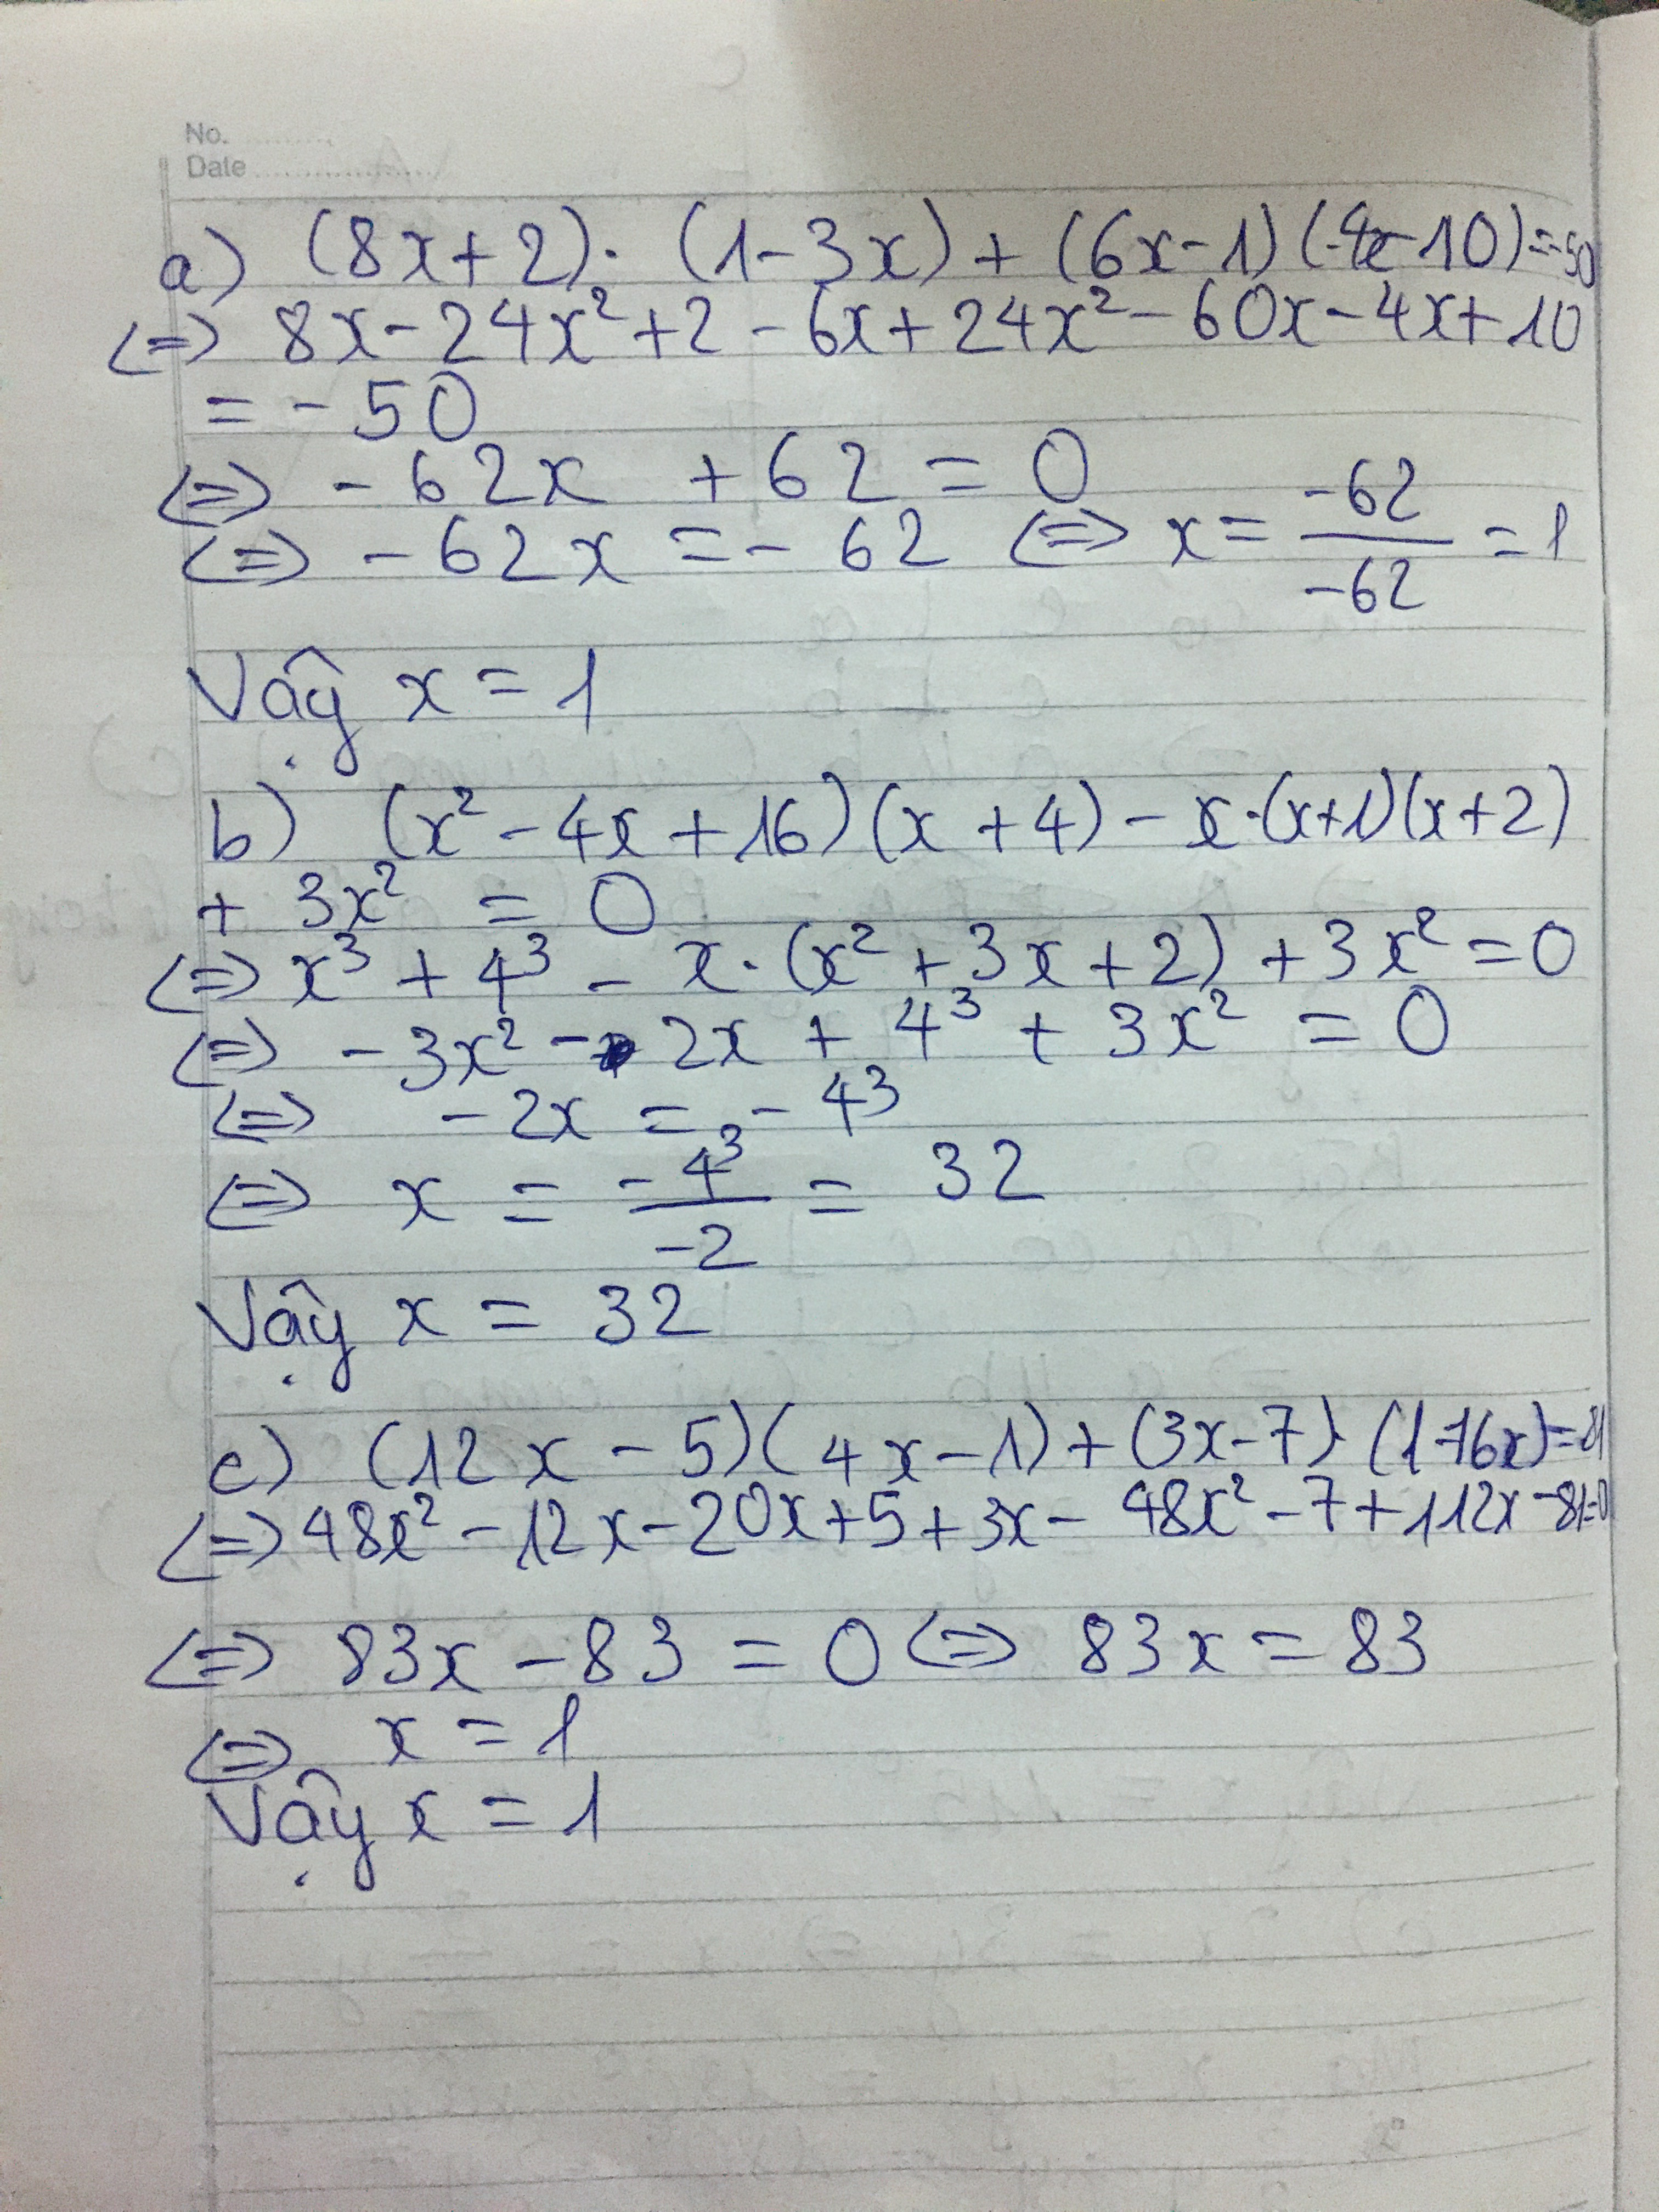 No.
Date
a) (8x+2). (1-3x) + (6x-1) (4x-10)=-50
<=> 8x-24x²+2-6x+24x²-60x-4x+10
= -50
<=> -62x +62 = 0
<=> -62x = -62 <=> x = -62/-62 = 1
Vậy x = 1
b) (x² - 4x + 16)(x + 4) - x.(x+1)(x+2)
+ 3x² = 0
<=> x³ + 4³ - x.(x² + 3x + 2) + 3x² = 0
<=> -3x² - 2x + 4³ + 3x² = 0
<=> -2x = -4³
<=> x = -4³/-2 = 32
Vậy x = 32
c) (12x - 5)(4x-1) + (3x-7). (1-16x)=81
<=> 48x² - 12x - 20x + 5 + 3x - 48x² - 7 + 112x - 81=0
<=> 83x - 83 = 0 <=> 83x = 83
<=> x = 1
Vậy x = 1